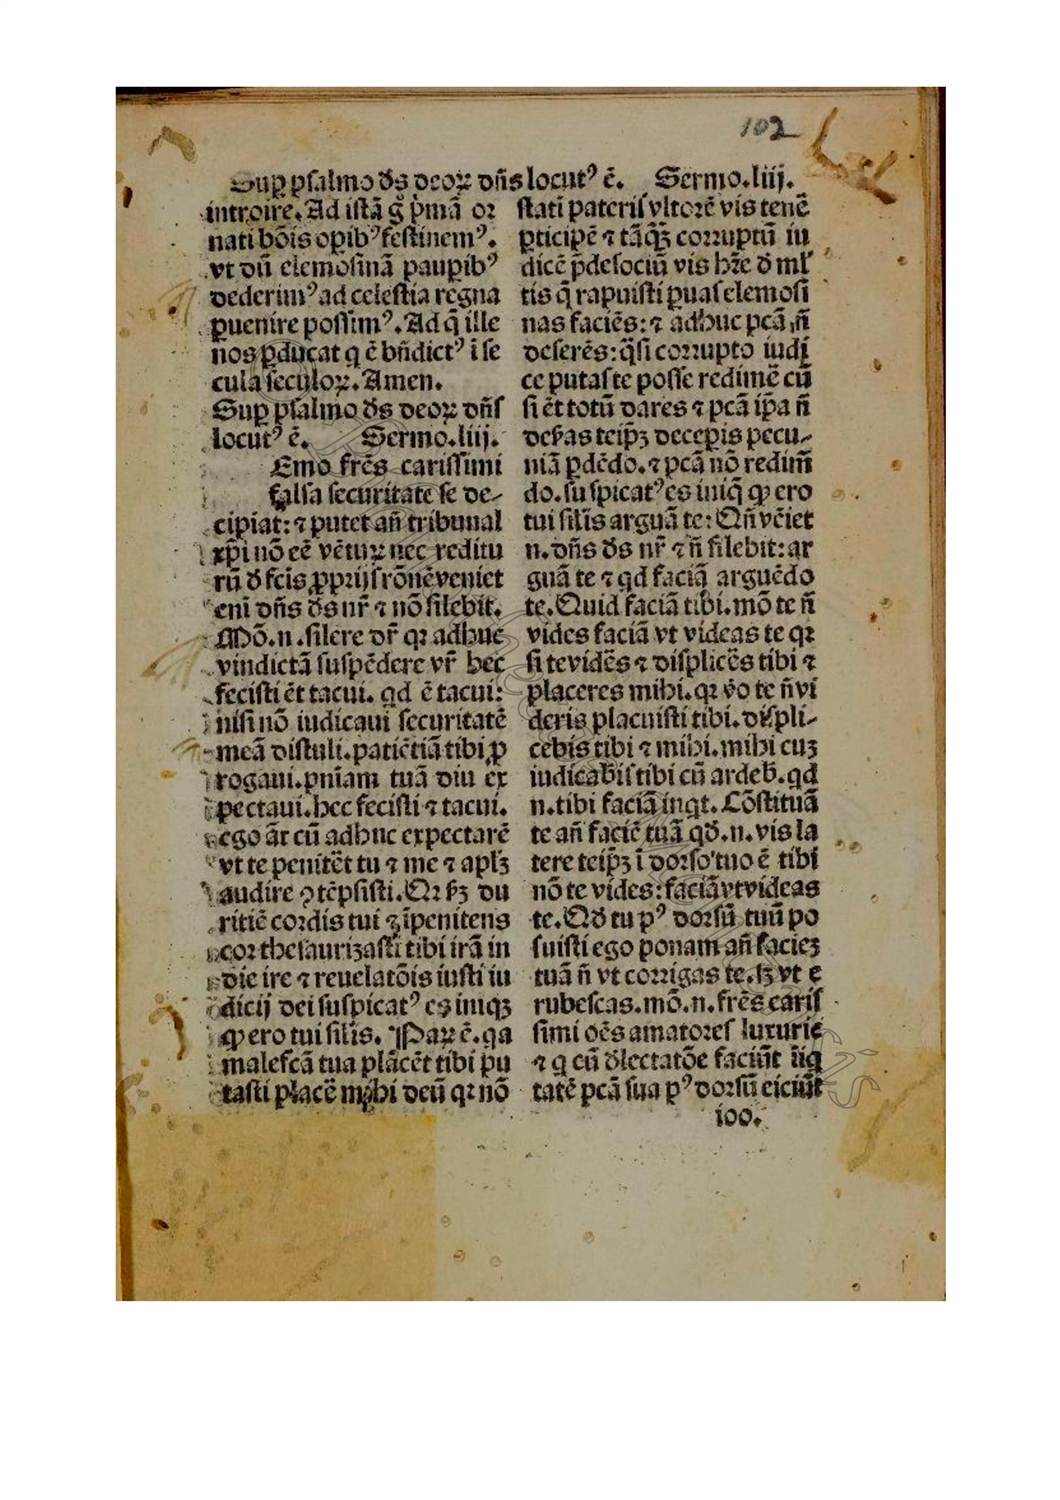 102
Suꝑ psalmo ds̄ deoꝝ dn̄s locutꝰ ē. Sermo.liij.
introire. Ad istā g̊ pͥmā or
nati bōis oꝑibꝰ festinemꝰ.
vt dū elemosinā pauꝑibꝰ
dederimꝰ ad celestia regna
ꝑuenire possimꝰ. Ad q̄ ille
nos ꝑducat q ē bn̄dictꝰ ī se
cula seculoꝝ. Amen.
Suꝑ psalmo ds̄ deoꝝ dn̄s
locutꝰ ē. Sermo.liij.
Emo frēs carissimi
falsa securitate se de-
cipiat: ⁊ putet an̄ tribunal
xp̄i nō eē vētuꝝ nec reditu
rū ꝺ fc̄is ꝓprijs rōnē veniet
enī dn̄s ds̄ nr̄ ⁊ nō silebit.
Mō.n.silere dr̄ qꝛ adhuc
vindictā suspēdere vr̄ hec
fecisti ēt tacui. qd ē tacui:
nisi nō iudicaui securitatē
meā distuli. patiētiā tibi ꝓ
rogaui. pn̄iam tuā diu ex
pectaui. hec fecisti ⁊ tacui.
ego āt cū adhuc expectarē
vt te penitēt tu ⁊ me ⁊ apl'ꝫ
audire ꝯtēpsisti. Qꝛ sꝫ du
ritiē cordis tui ⁊ īpenitens
cor thesaurizasti tibi irā in
die ire ⁊ reuelatōis iusti iu
dicij dei suspicatꝰ es iniqꝫ
ꝙ ero tui silīs. Paꝝ ē. qa
malefcā tua plācēt tibi pu
tasti placē mihi deū qꝛ nō
stati pateris vltorē vis tenē
ꝑticipē ⁊ tāq̄ꝫ corruptū iu
dicē p̄de sociū vis hr̄e ꝺ ml'
tis q̄ rapuisti ꝑuas elemosi
nas faciēs: ⁊ adhuc pcā n̄
deserēs: q̄si corrupto iudi
ce putas te posse redimē cū
si ēt totū dares ⁊ pcā ip̄a n̄
des̄as teip̄ꝫ deceꝑis pecu-
niā ꝑdēdo. ⁊ pcā nō redim̄
do. suspicatꝰ es iniq̄ ꝙ ero
tui silīs arguā te: Qn̄ vēiet
n. dn̄s ds̄ nr̄ ⁊ n̄ silebit: ar
guā te ⁊ qd faciā arguēdo
te. Quid faciā tibi. mō te n̄
vides faciā vt videas te qꝛ
si te vidēs ⁊ displicēs tibi ⁊
placeres mihi. qꝛ v̊o te n̄ vi
deris placuisti tibi. displi-
cebis tibi ⁊ mihi. mihi cuꝫ
iudicab'is tibi cū ardeb̄. qd
n. tibi faciā inqt. Cōstituā
te an̄ faciē tuā qd̄. n. vis la
tere teip̄ꝫ ī dorso tuo ē tibi
nō te vides: faciā vt videas
te. Qd̄ tu pꝰ dorsū tuū po
suisti ego ponam an̄ facieꝫ
tuā n̄ vt corrigas te. sꝫ vt e
rubescas. mō. n. frēs caris
simi oēs amatores luxurie
⁊ q cū ꝺlectatōe faciūt īiq
tatē pcā sua pꝰ dorsū eiciūt
ioo.